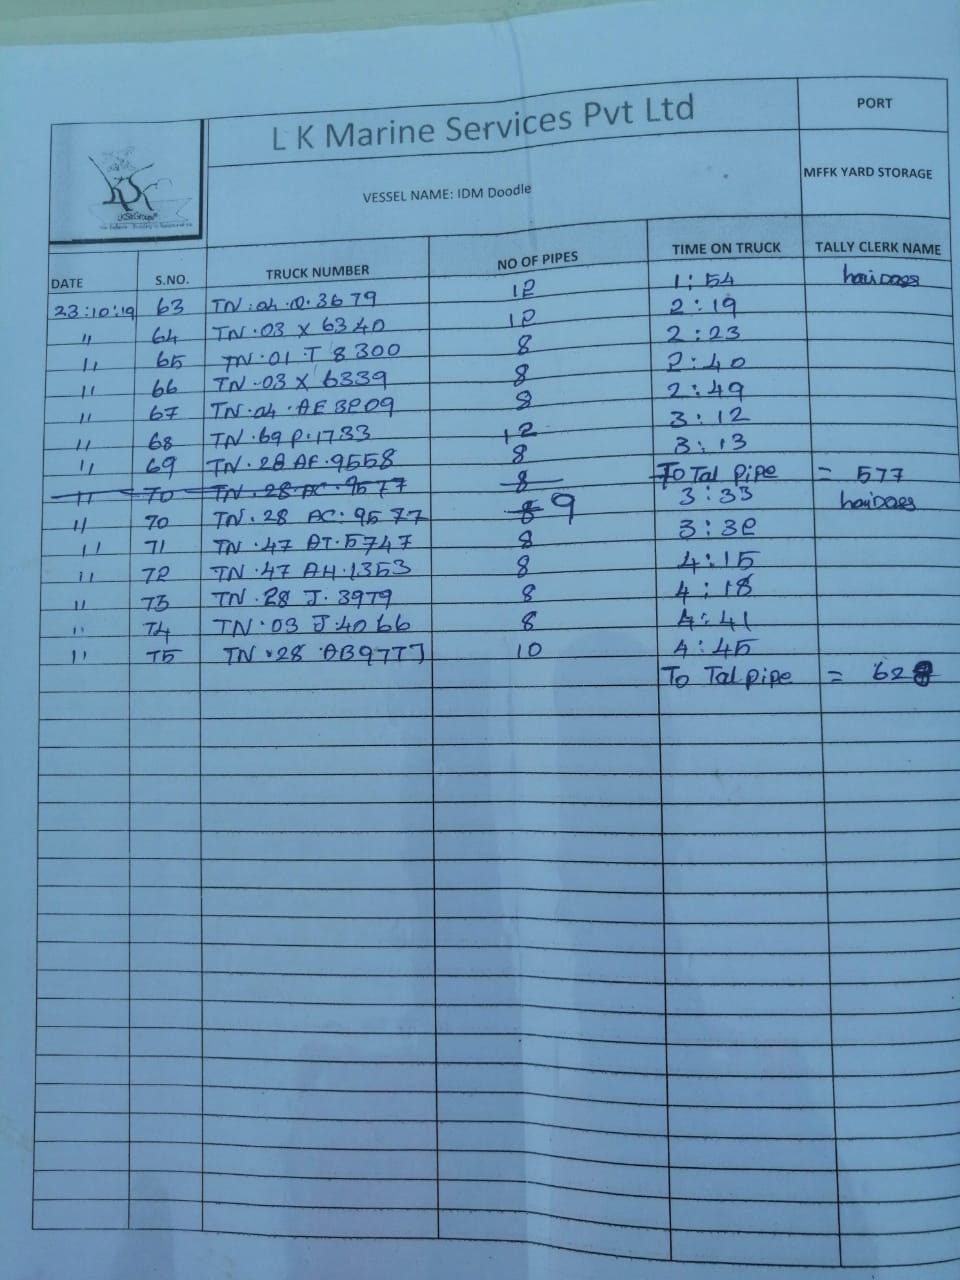 L K Marine Services Pvt Ltd
PORT
VESSEL NAME: IDM Doodle
MFFK YARD STORAGE
DATE S.NO. TRUCK NUMBER NO OF PIPES TIME ON TRUCK TALLY CLERK NAME
23:10:19 63 TN:04.Q.3679 12 1:54
" 64 TN.03 X 6340 12 2:19
" 65 TN.01 T 8300 8 2:23
" 66 TN.03 X 6339 8 2:40
" 67 TN.04.AE 3209 8 2:49
" 68 TN.69 P.1733 12 3:12
" 69 TN.28 AF.9558 8 3:13
" 70 TN.28 AC.9577 8 To Tal pipe = 577
" 70 TN.28 AC:9577 9 3:33
" 71 TN.47 AT.5747 8 3:32
" 72 TN.47 AH.1353 8 4:15
" 73 TN.28 J.3979 8 4:18
" 74 TN.03 J.4066 8 4:41
" 75 TN.28 AB9777 10 4:45
To Tal pipe = 628